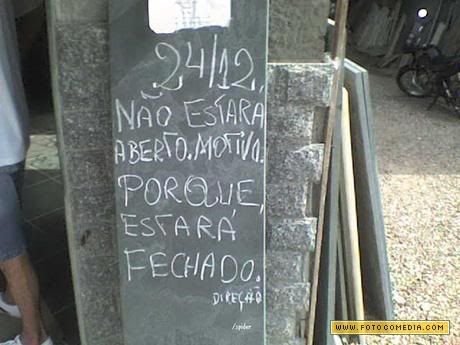 24/12,
NÃO ESTARA
ABERTO. MOTIVO.
PORQUE,
ESTARÁ
FECHADO.
DIREÇÃO
/spider
WWW.FOTOCOMEDIA.COM